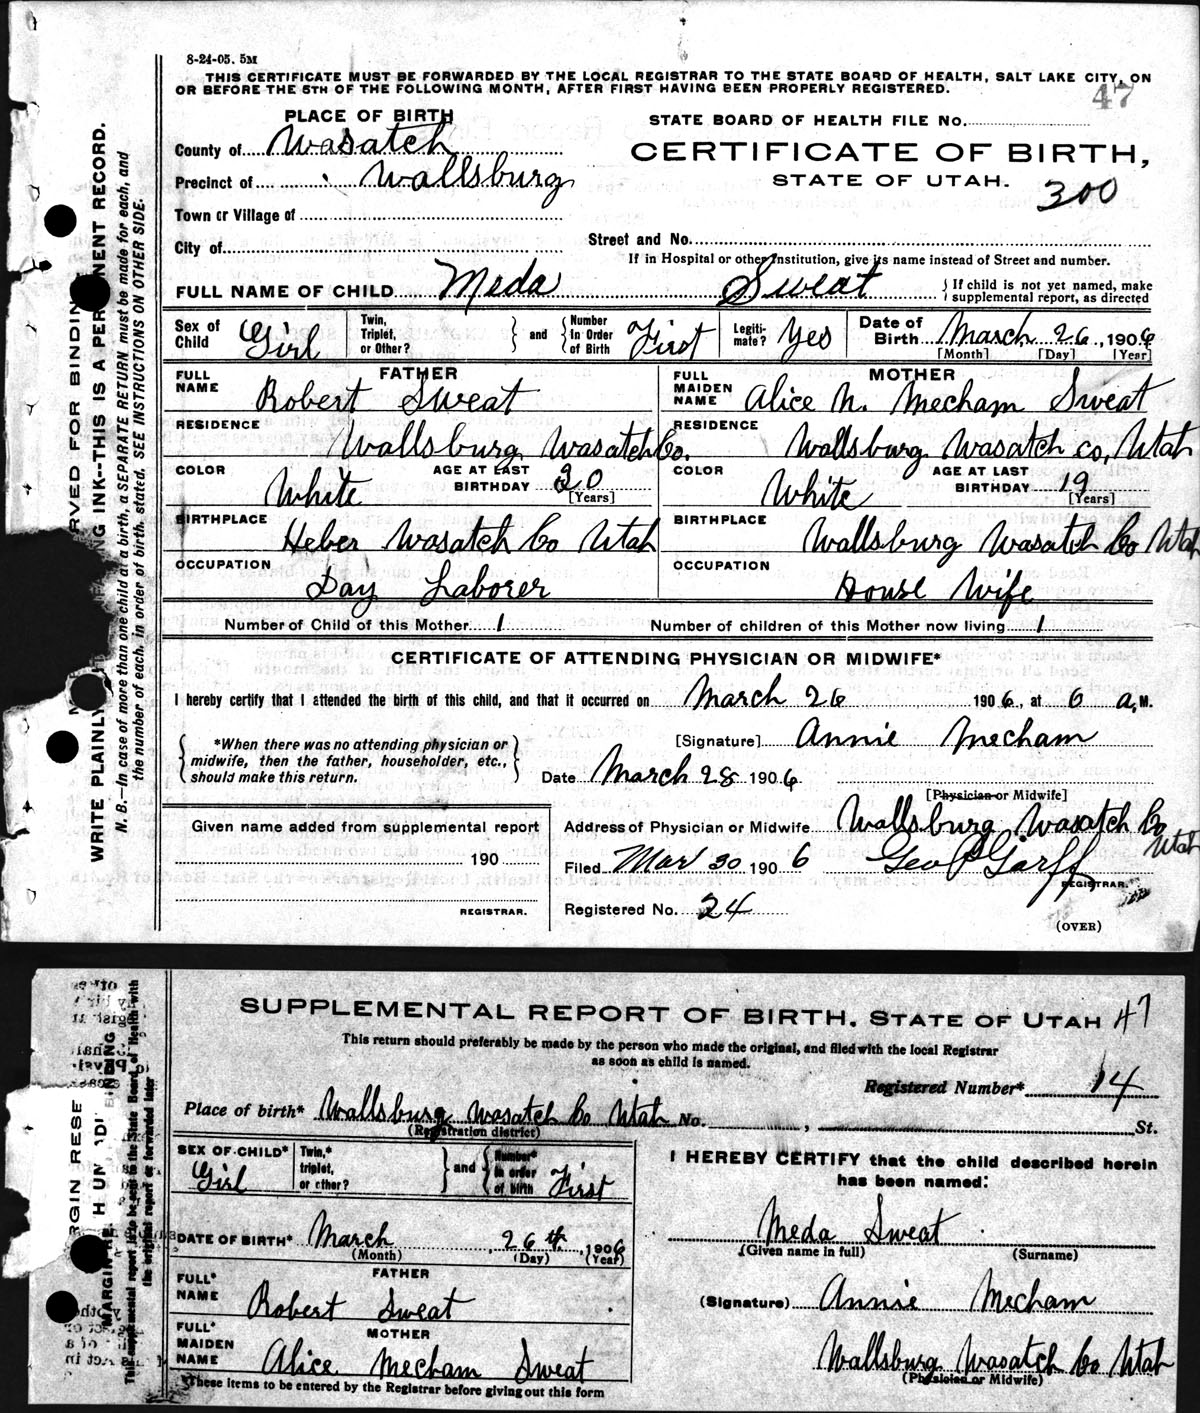 8-24-05. 5M
THIS CERTIFICATE MUST BE FORWARDED BY THE LOCAL REGISTRAR TO THE STATE BOARD OF HEALTH, SALT LAKE CITY, ON
OR BEFORE THE 5TH OF THE FOLLOWING MONTH, AFTER FIRST HAVING BEEN PROPERLY REGISTERED.
47
PLACE OF BIRTH
STATE BOARD OF HEALTH FILE No.
County of Wasatch
CERTIFICATE OF BIRTH,
Precinct of Wallsburg
STATE OF UTAH.
300
Town or Village of
City of
Street and No.
If in Hospital or other Institution, give its name instead of Street and number.
FULL NAME OF CHILD Meda Sweat { If child is not yet named, make supplemental report, as directed
Sex of Child Girl Twin, Triplet, or Other? } and { Number In Order of Birth First Legiti-mate? Yes Date of Birth March 26, 1906
[Month] [Day] [Year]
FATHER MOTHER
FULL NAME Robert Sweat FULL MAIDEN NAME Alice N. Mecham Sweat
RESIDENCE Wallsburg Wasatch Co. RESIDENCE Wallsburg Wasatch co, Utah
COLOR White AGE AT LAST BIRTHDAY 20 [Years] COLOR White AGE AT LAST BIRTHDAY 19 [Years]
BIRTHPLACE Heber Wasatch Co Utah BIRTHPLACE Wallsburg Wasatch Co Utah
OCCUPATION Day Laborer OCCUPATION House Wife
Number of Child of this Mother 1 Number of children of this Mother now living 1
CERTIFICATE OF ATTENDING PHYSICIAN OR MIDWIFE*
I hereby certify that I attended the birth of this child, and that it occurred on March 26 1906, at 6 a, M.
{ *When there was no attending physician or midwife, then the father, householder, etc., should make this return. }
[Signature] Annie Mecham
Date March 28 1906
[Physician or Midwife]
Given name added from supplemental report
Address of Physician or Midwife Wallsburg Wasatch Co Utah
190
Filed Mar 30 1906 Geo P Garff
REGISTRAR.
REGISTRAR.
Registered No. 24
(OVER)
WRITE PLAINLY
ING INK--THIS IS A PERMANENT RECORD.
RVED FOR BINDING
N. B.—In case of more than one child at a birth, a SEPARATE RETURN must be made for each, and
the number of each, in order of birth, stated. SEE INSTRUCTIONS ON OTHER SIDE.
SUPPLEMENTAL REPORT OF BIRTH. STATE OF UTAH 47
This return should preferably be made by the person who made the original, and filed with the local Registrar
as soon as child is named.
Registered Number* 14
Place of birth* Wallsburg Wasatch Co Utah No. , St.
(Registration district)
SEX OF CHILD* Girl Twin,* triplet, or other? } and { Number* in order of birth First
I HEREBY CERTIFY that the child described herein
has been named:
DATE OF BIRTH* March 26th, 1906
(Month) (Day) (Year)
Meda Sweat
(Given name in full) (Surname)
FATHER
FULL* NAME Robert Sweat
(Signature) Annie Mecham
MOTHER
FULL* MAIDEN NAME Alice Mecham Sweat
Wallsburg Wasatch Co Utah
(Physician or Midwife)
*These items to be entered by the Registrar before giving out this form